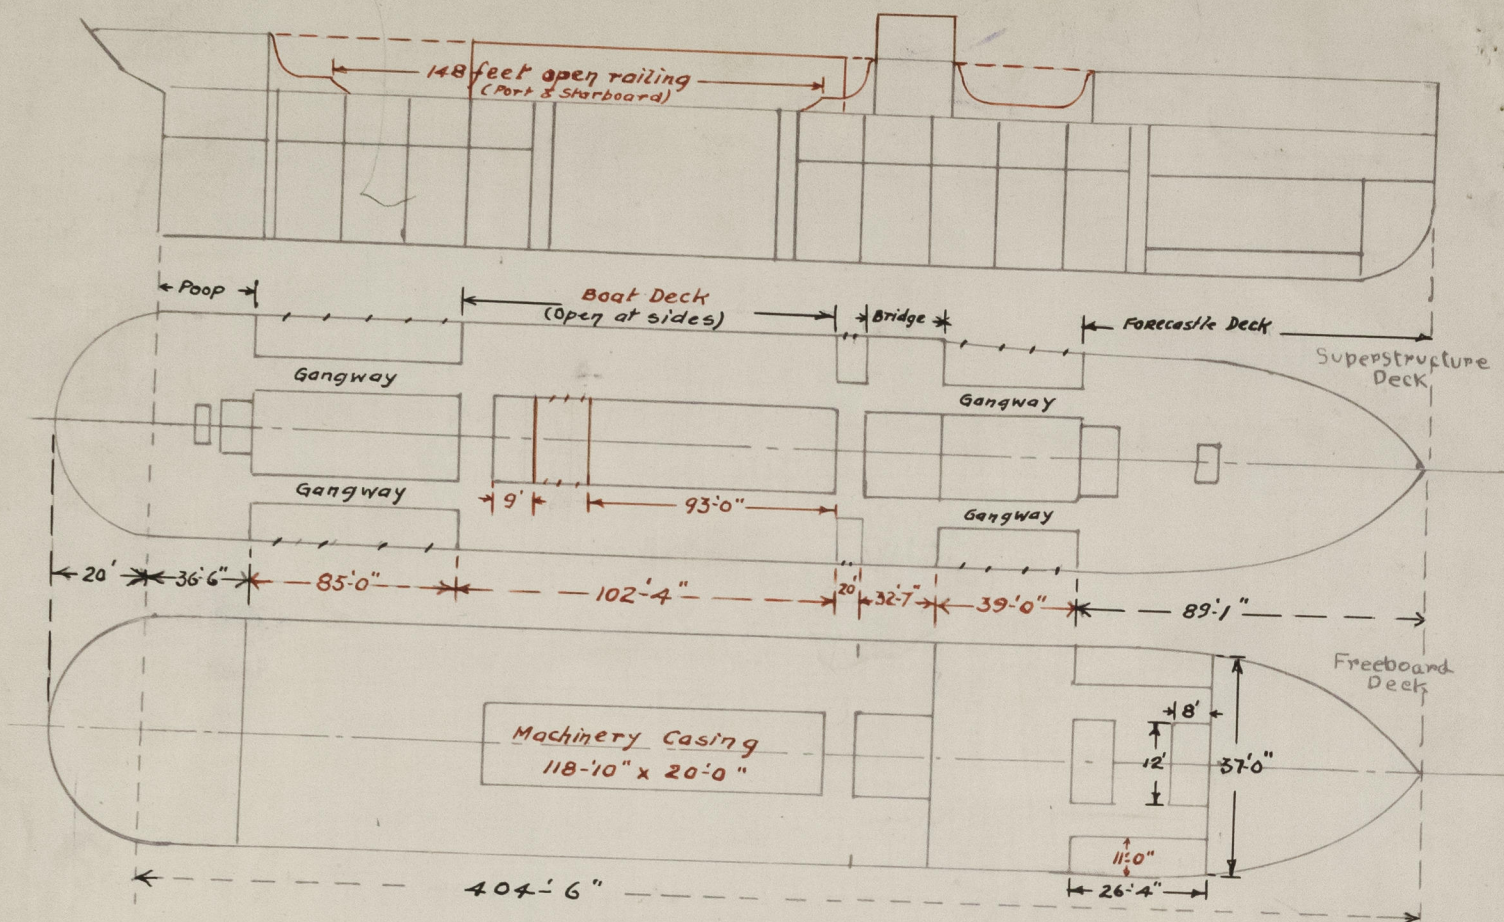 148 feet open railing
(Port & Starboard)
Poop
Boat Deck
(Open at sides)
Bridge
Forecastle Deck
Superstructure
Deck
Gangway
Gangway
Gangway
Gangway
9'
93'-0"
20'
36'-6"
85'-0"
102'-4"
20'
32'-7"
39'-0"
89'-1"
Freeboard
Deck
Machinery Casing
118'-10" x 20'-0"
8'
12'
37'-0"
11'-0"
26'-4"
404'-6"